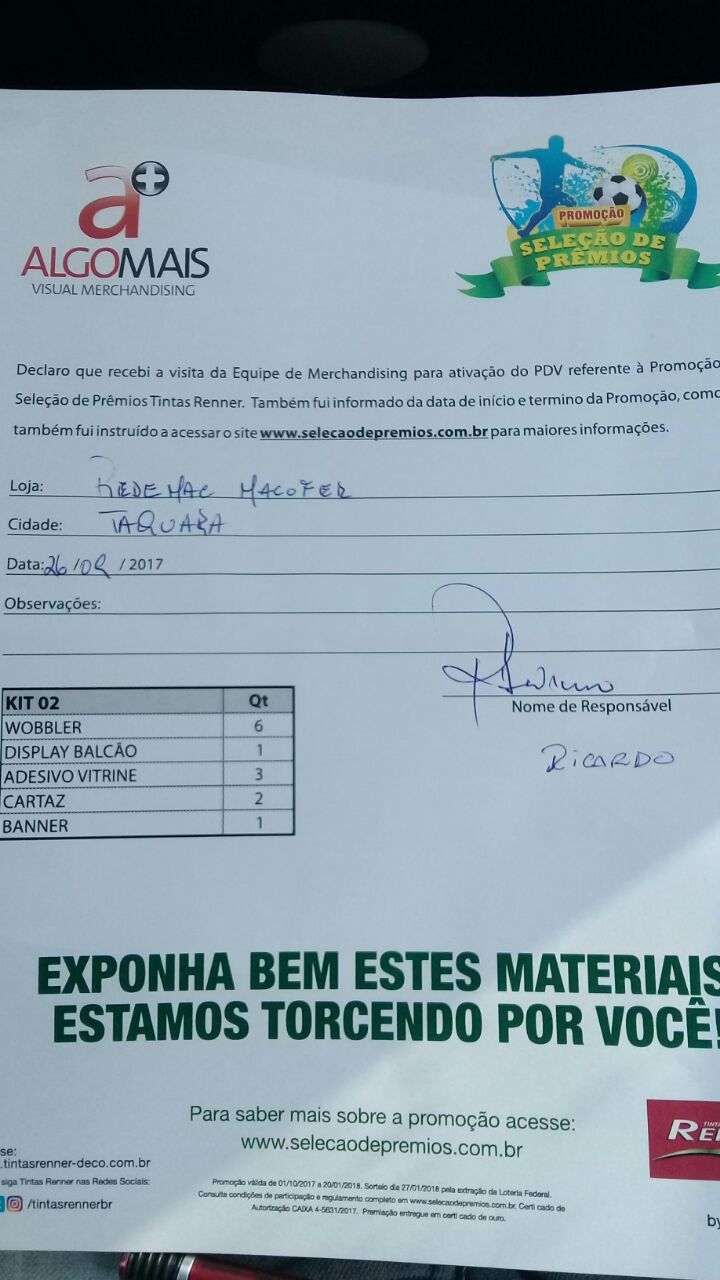 a+
ALGOMAIS
VISUAL MERCHANDISING
PROMOÇÃO
SELEÇÃO DE
PRÊMIOS
Declaro que recebi a visita da Equipe de Merchandising para ativação do PDV referente à Promoção
Seleção de Prêmios Tintas Renner. Também fui informado da data de início e termino da Promoção, como
também fui instruído a acessar o site www.selecaodepremios.com.br para maiores informações.
Loja: REDEMAC MACOFER
Cidade: TAQUARA
Data: 26/09/2017
Observações:
Nome de Responsável
RICARDO
KIT 02 Qt
WOBBLER 6
DISPLAY BALCÃO 1
ADESIVO VITRINE 3
CARTAZ 2
BANNER 1
EXPONHA BEM ESTES MATERIAIS
ESTAMOS TORCENDO POR VOCÊ!
Para saber mais sobre a promoção acesse:
www.selecaodepremios.com.br
se:
.tintasrenner-deco.com.br
siga Tintas Renner nas Redes Sociais:
/tintasrennerbr
Promoção válida de 01/10/2017 a 20/01/2018. Sorteio dia 27/01/2018 pela extração da Loteria Federal.
Consulte condições de participação e regulamento completo em www.selecaodepremios.com.br. Certi cado de
Autorização CAIXA 4-5631/2017. Premiação entregue em certi cado de ouro.
TINTA
RE
by